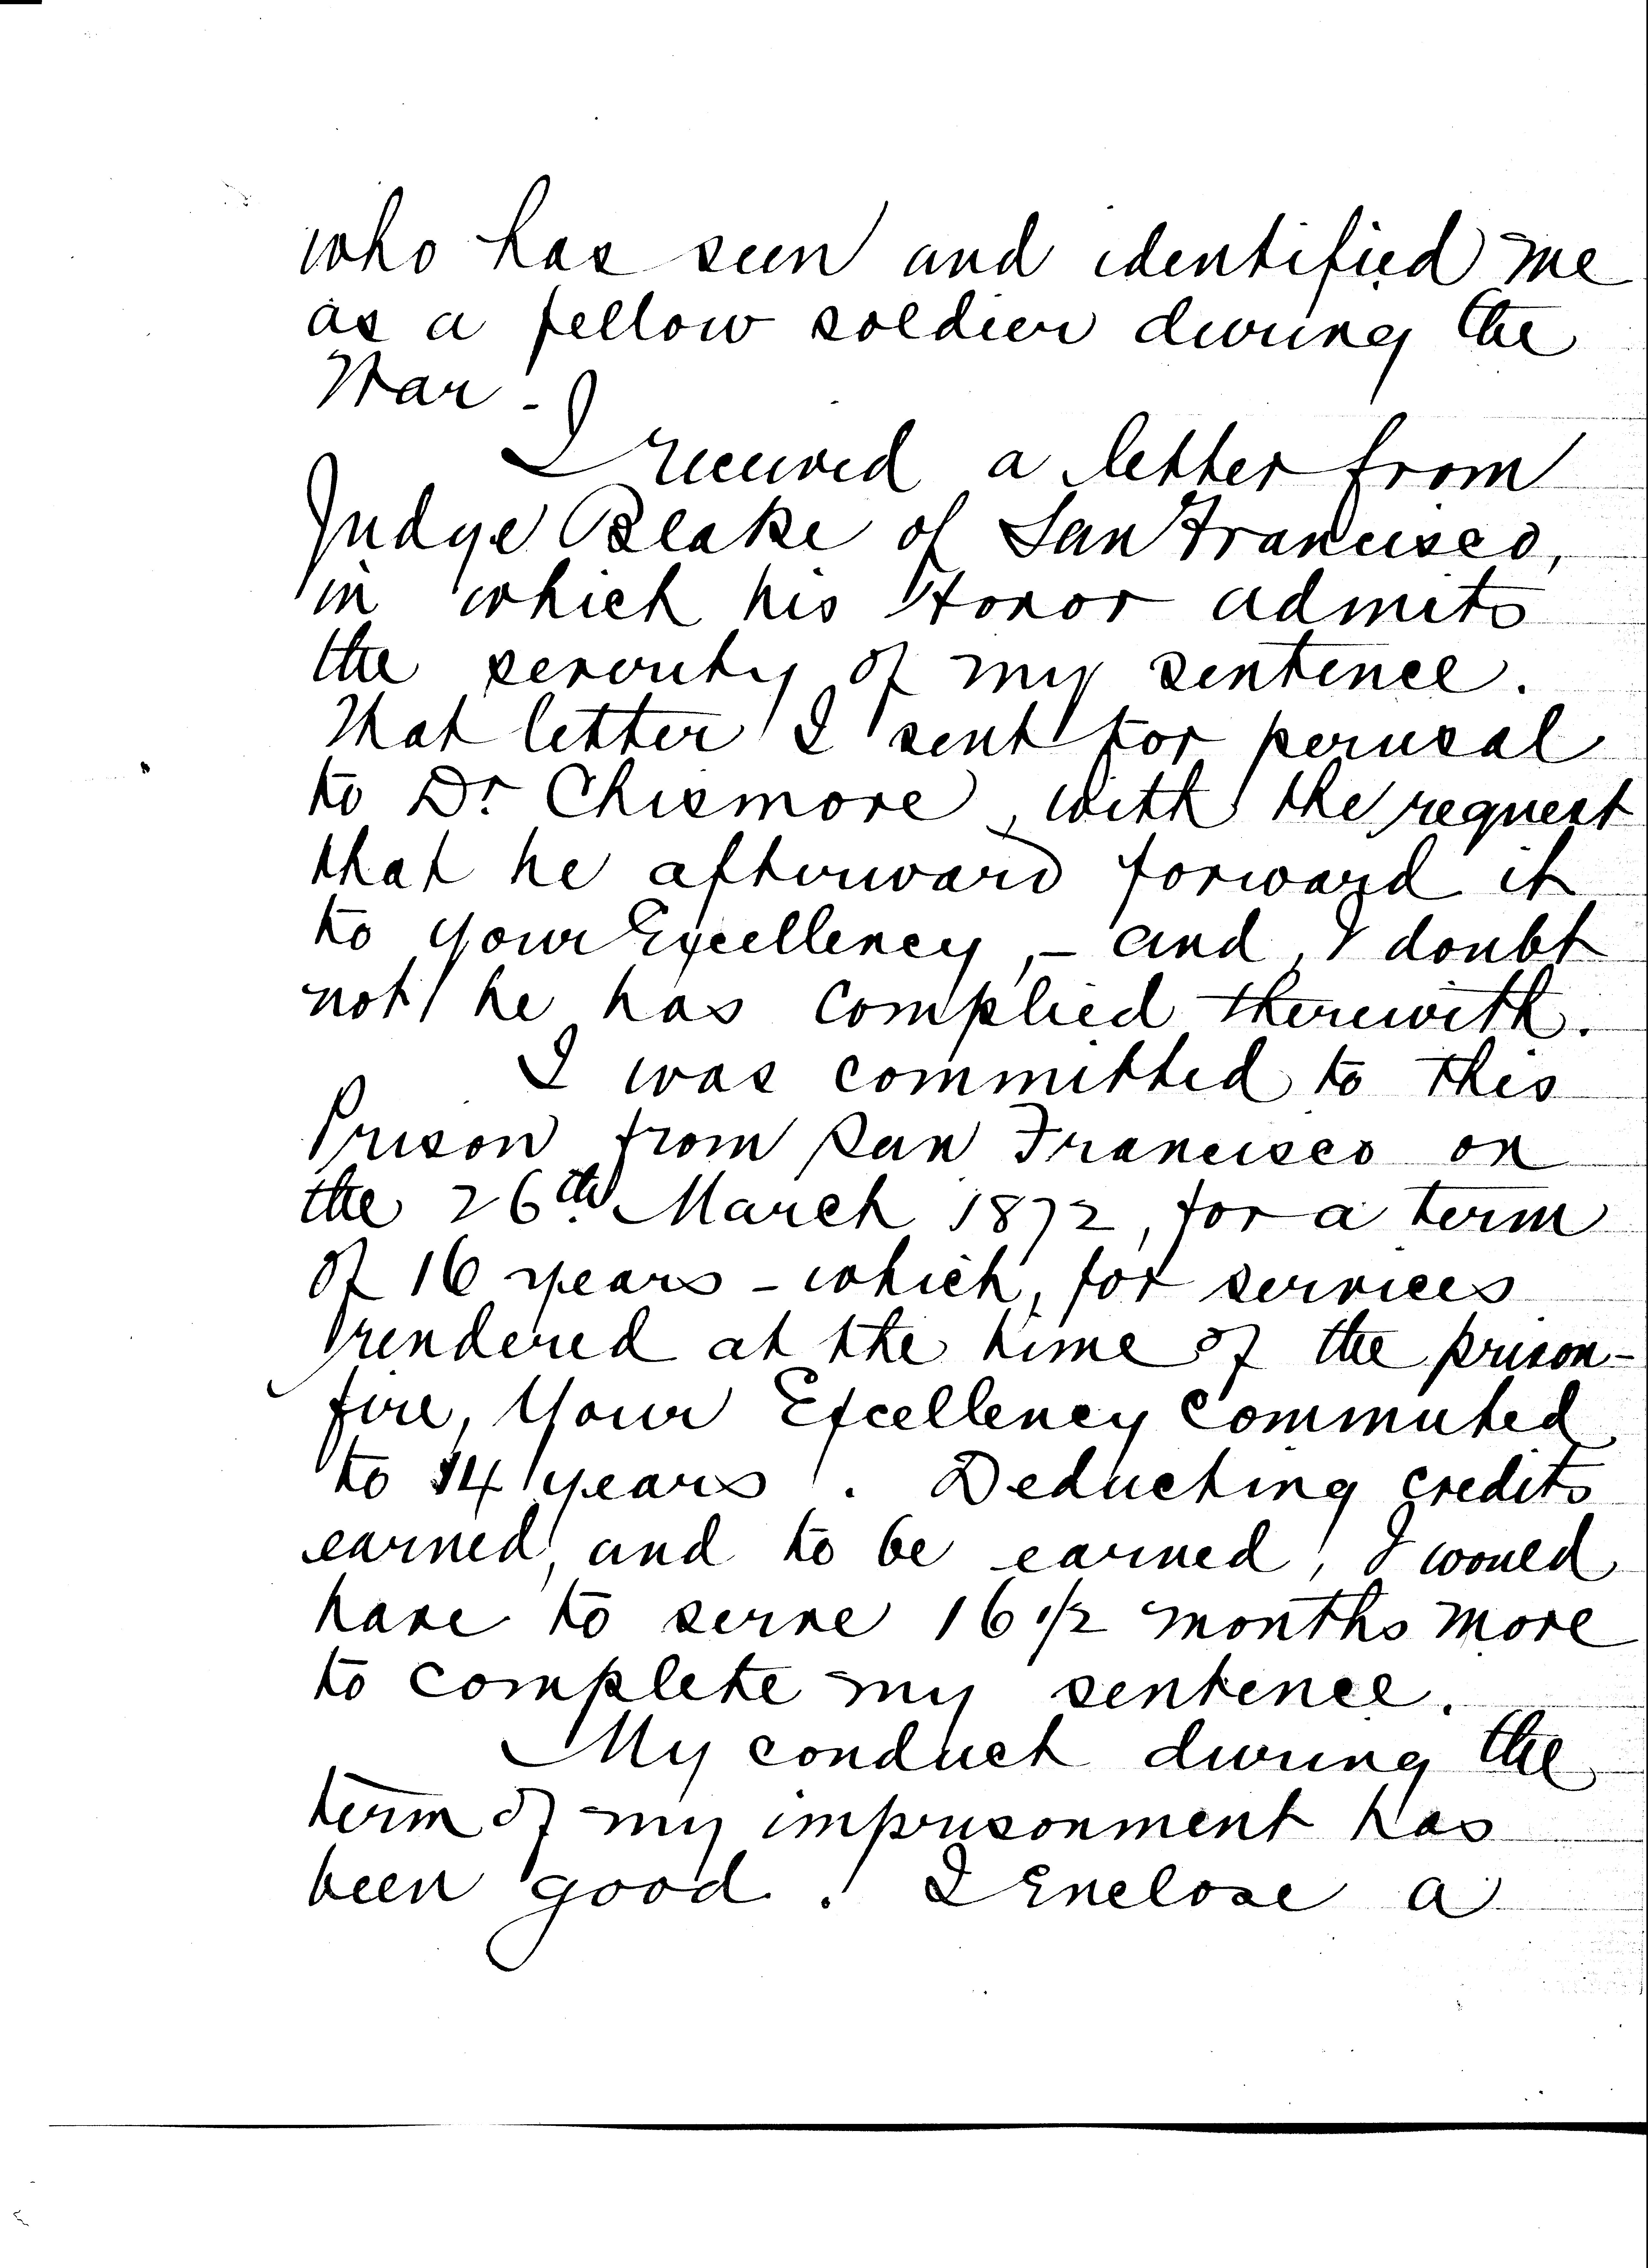 who has seen and identified me
as a fellow soldier during the
War -
I received a letter from
Judge Blake of San Francisco,
in which his Honor admits
the severity of my sentence.
That letter I sent for perusal
to Dr Chismore, with the request
that he afterward forward it
to your Excellency, - and I doubt
not he has complied therewith.
I was committed to this
Prison from San Francisco on
the 26th March 1872, for a term
of 16 years - which, for services
rendered at the time of the prison-
fire, Your Excellency commuted
to 14 years. Deducting credits
earned, and to be earned, I would
have to serve 16 1/2 months more
to complete my sentence.
My conduct during the
term of my imprisonment has
been good. I Enclose a